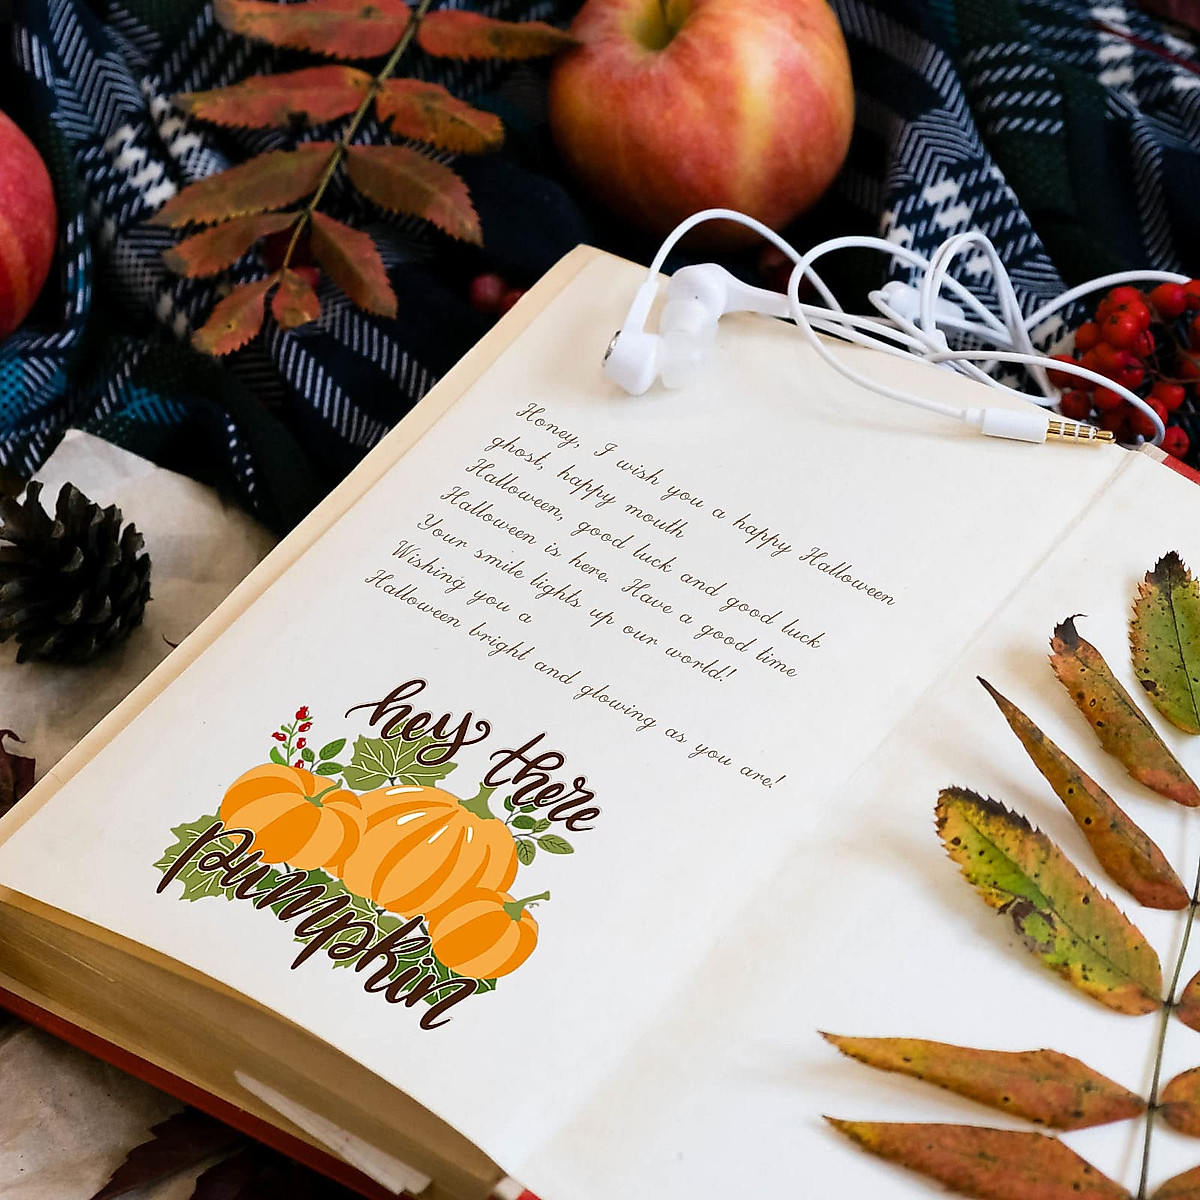 Honey, I wish you a happy Halloween
ghost, happy mouth
Halloween, good luck and good luck
Halloween is here. Have a good time
Your smile lights up our world!
Wishing you a
Halloween bright and glowing as you are!
hey there
pumpkin